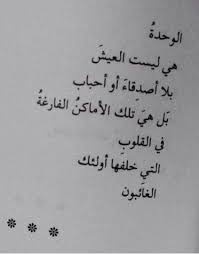 الوحدةُ
هي ليست العيشَ
بلا أصدقاءَ أو أحباب
بَل هيَ تلك الأماكنُ الفارغةُ
في القلوبِ
التي خلفها أولئك
الغائبون
* * *